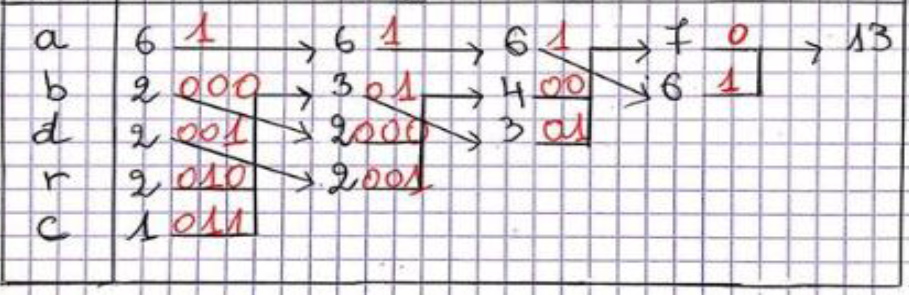 a 6 1 6 1 6 1 7 0 13
b 2 000 3 01 4 00 6 1
d 2 001 2 000 3 01
r 2 010 2 001
c 1 011